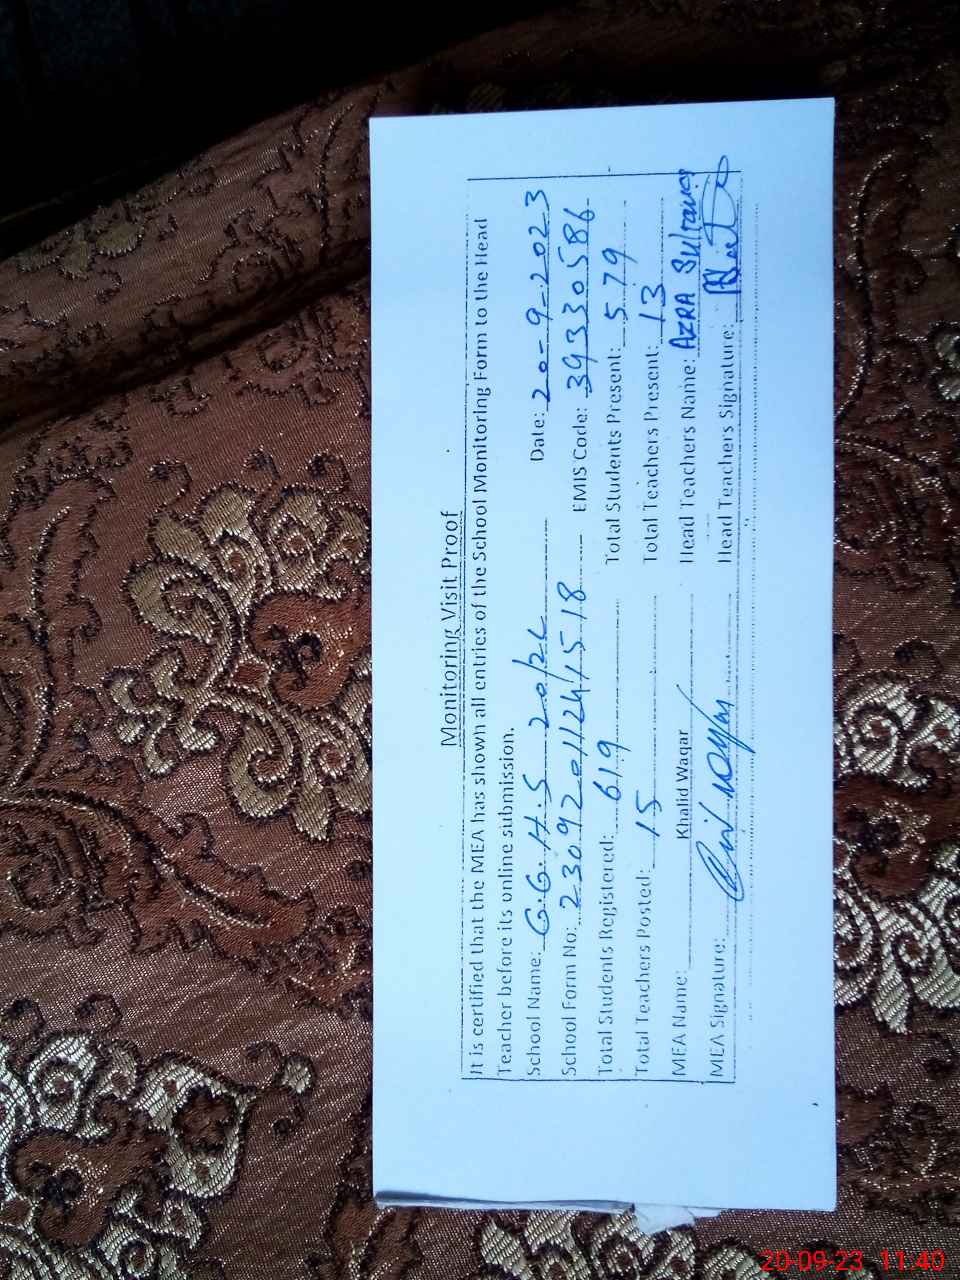 Monitoring Visit Proof
It is certified that the MEA has shown all entries of the School Monitoring Form to the Head
Teacher before its online submission.
School Name: G.G.H.S Date: 20-9-2023
School Form No: EMIS Code: 39330586
Total Students Registered: 619 Total Students Present: 579
Total Teachers Posted: 15 Total Teachers Present: 13
MEA Name: Khalid Waqar Head Teachers Name: AZRA Sultana
MEA Signature: Head Teachers Signature:
20-09-23 11:40